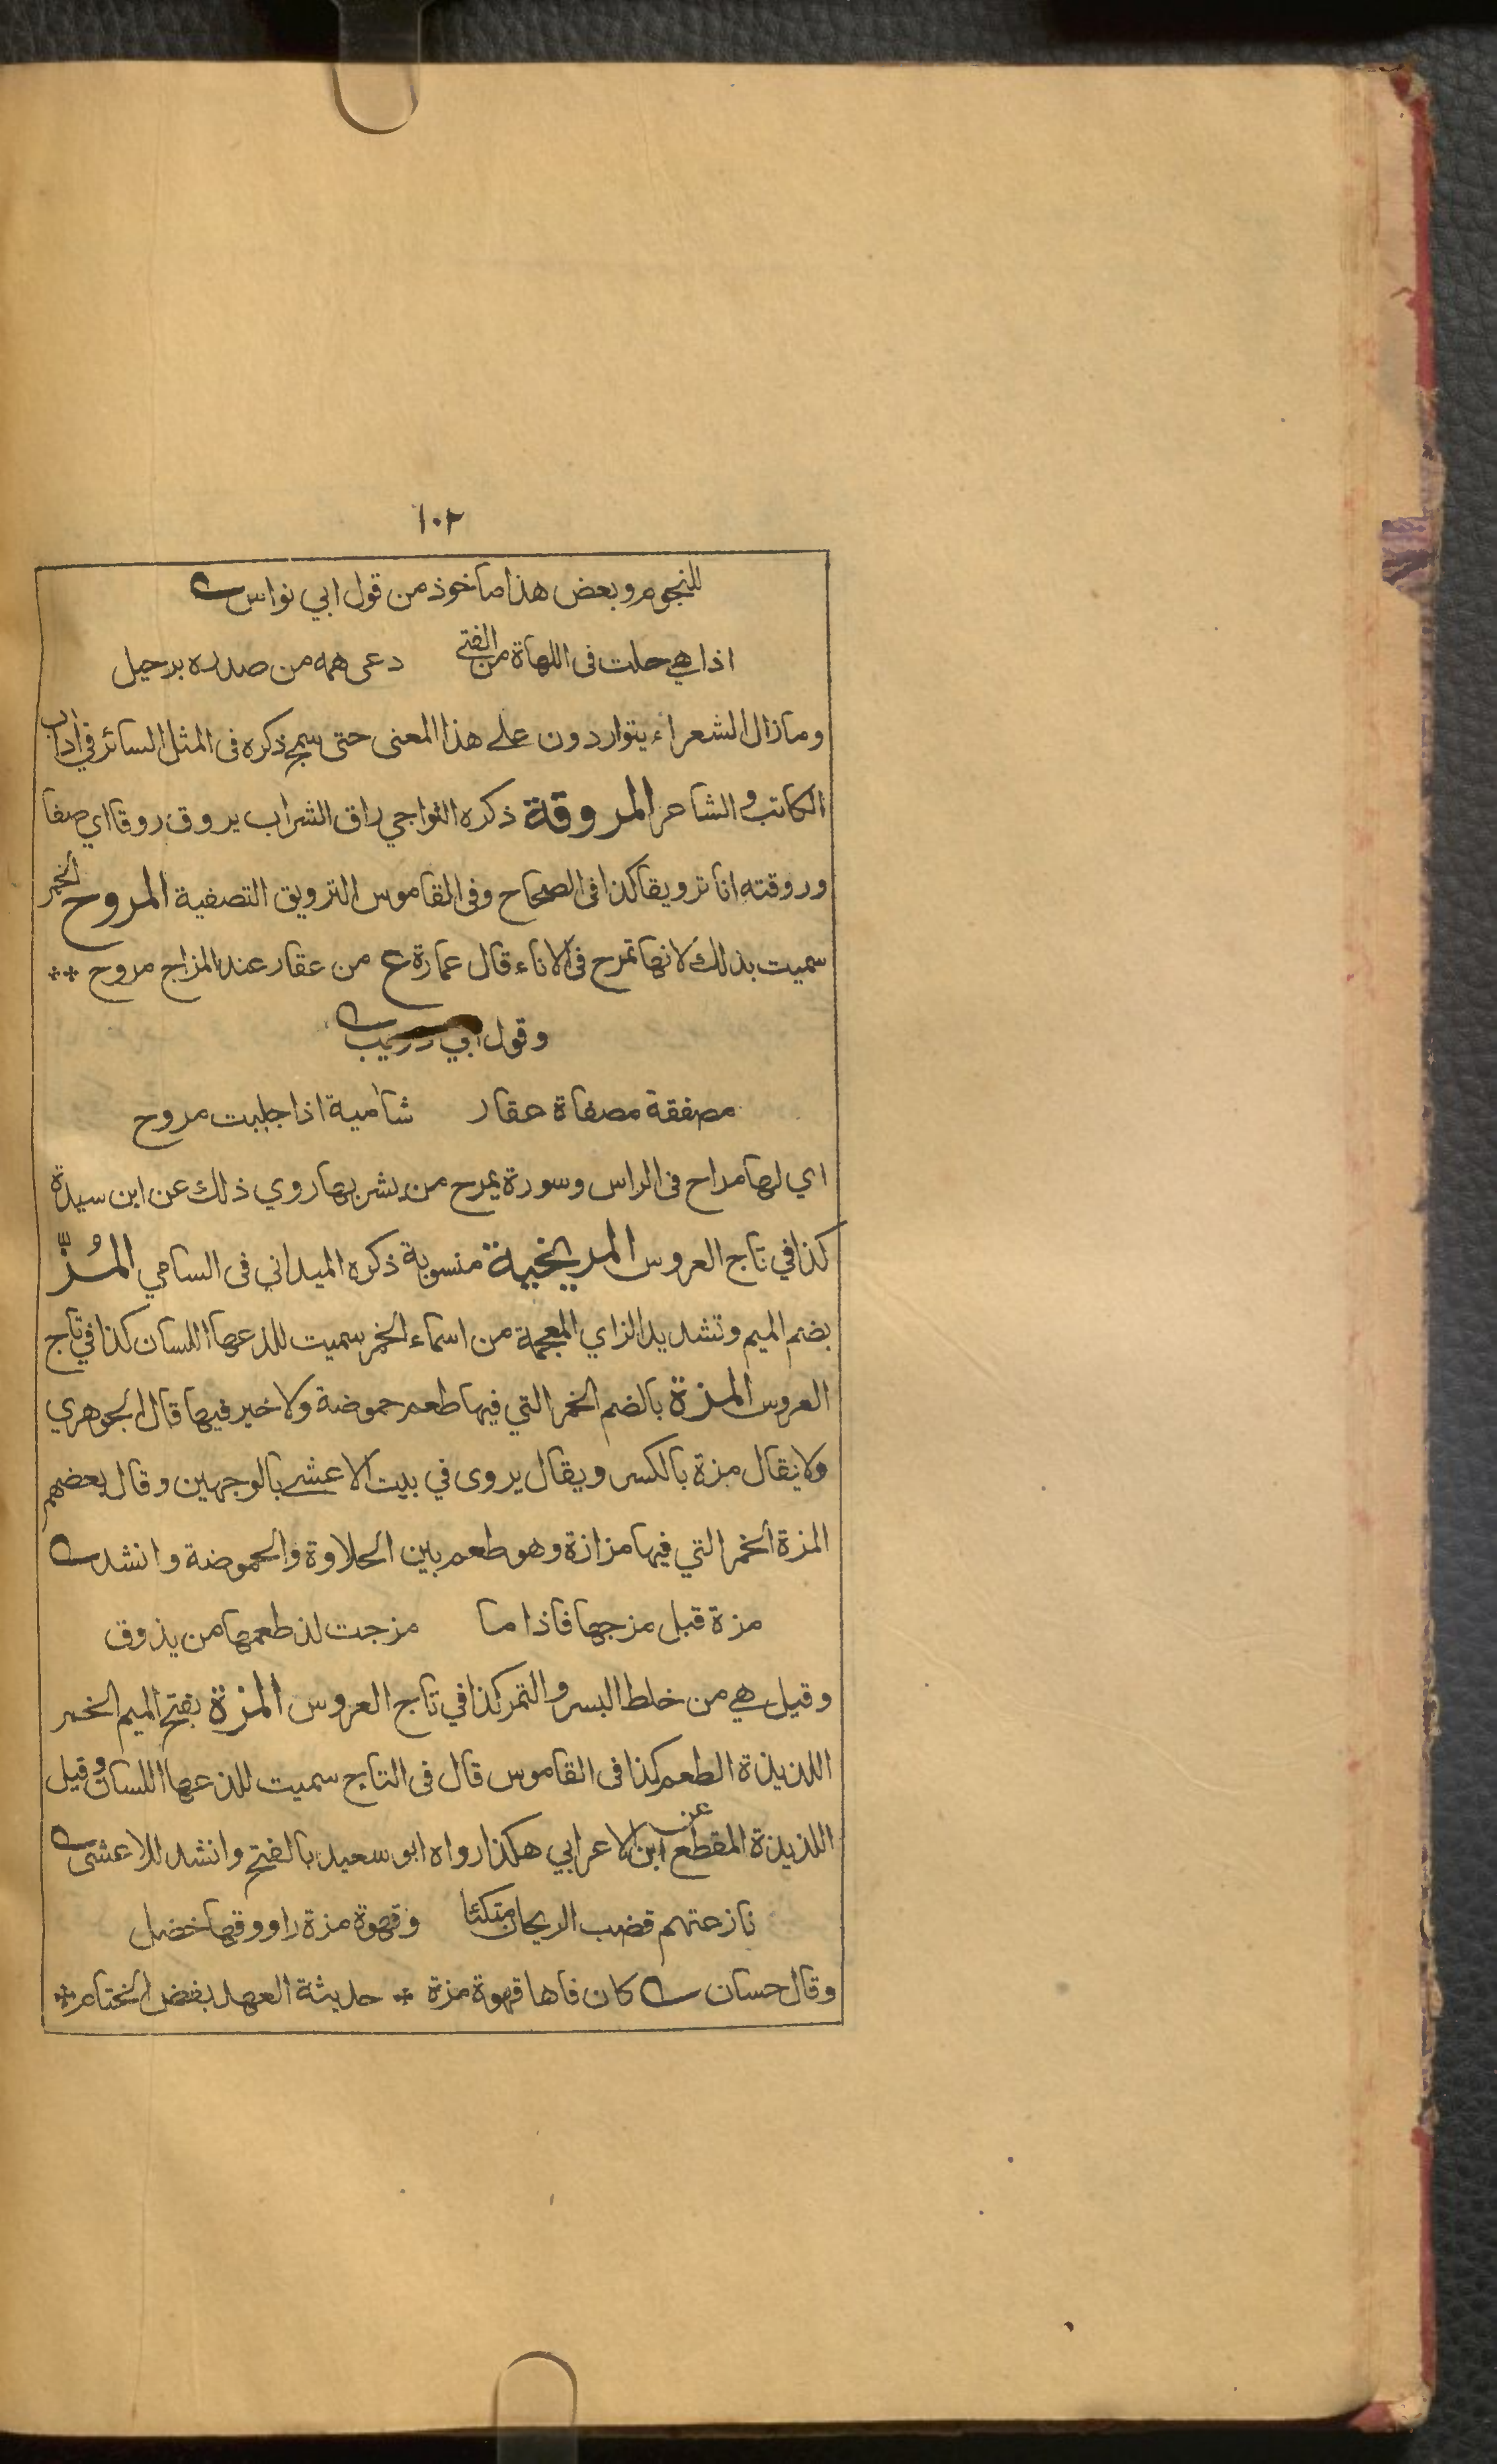 ١٠٢
للنجوم وبعض هذا ماخوذ من قول ابي نواس
اذا هي حلت فى اللهاة من الفتى دعى همه من صدره برحيل
وما زال الشعراء يتواردون على هذا المعنى حتى سمج ذكره فى المثل السائر في اداب
الكاتب والشاعر المروقة ذكره النواجي راق الشراب يروق روقا اي صفا
وروقته انا ترويقا كذا فى الصحاح وفى القاموس الترويق التصفية المروح الخمر
سميت بذلك لانها تمرح فى الاناء قال عمارة ع من عقار عند المزاج مروح **
وقول ابي
مصفقة مصفاة عقار شامية اذا جليت مروح
اي لها مراح فى الراس وسورة يمرح من يشربها روي ذلك عن ابن سيدة
كذا في تاج العروس المريخية منسوبة ذكره الميداني فى السامي المُزّ
بضم الميم وتشديد الزاي المعجمة من اسماء الخمر سميت للذعها اللسان كذا في تاج
العروس المزة بالضم الخمر التي فيها طعم حموضة ولا خير فيها قال الجوهري
ولا يقال مزة بالكسر ويقال يروى في بيت الاعشى بالوجهين وقال بعضهم
المزة الخمر التي فيها مزازة وهو طعم بين الحلاوة والحموضة وانشد
مزة قبل مزجها فاذا ما مزجت لذ طعمها من يذوق
وقيل هي من خلط البسر والتمر كذا في تاج العروس المزة بفتح الميم الخمر
اللذيذة الطعم كذا فى القاموس قال فى التاج سميت للذعها اللسان وقيل
اللذيذة المقطع عن ابن الاعرابي هكذا رواه ابو سعيد بالفتح وانشد للاعشى
نازعتهم قضب الريحان متكئا وقهوة مزة راووقها خضل
وقال حسان كان فاها قهوة مزة * حديثة العهد بفض الختام *